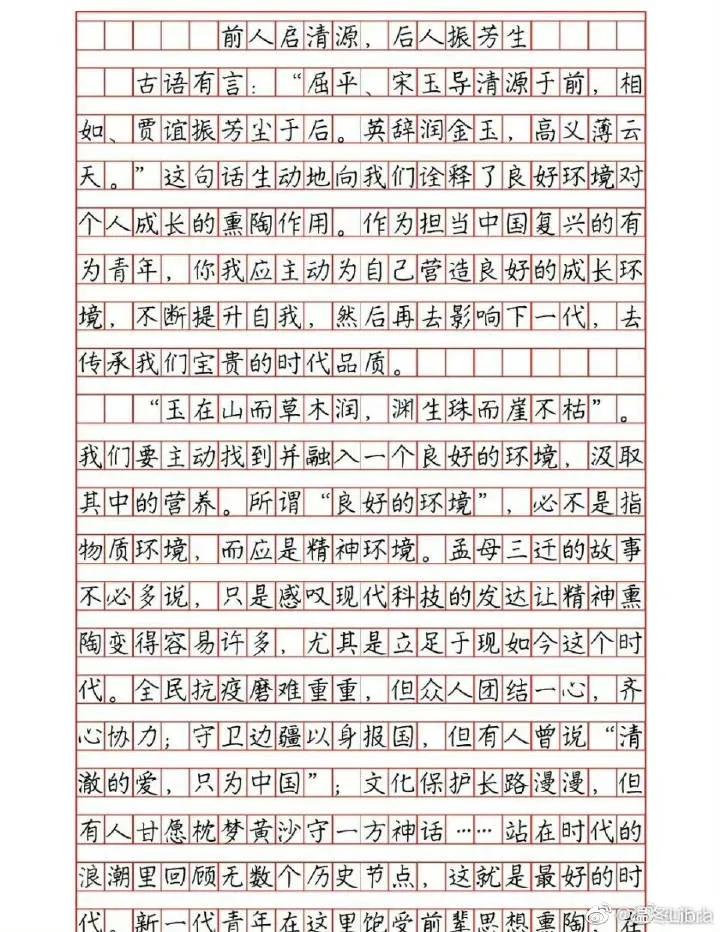 前人启清源，后人振芳生
古语有言：“屈平、宋玉导清源于前，相
如、贾谊振芳尘于后。英辞润金玉，高义薄云
天。”这句话生动地向我们诠释了良好环境对
个人成长的熏陶作用。作为担当中国复兴的有
为青年，你我应主动为自己营造良好的成长环
境，不断提升自我，然后再去影响下一代，去
传承我们宝贵的时代品质。
“玉在山而草木润，渊生珠而崖不枯”。
我们要主动找到并融入一个良好的环境，汲取
其中的营养。所谓“良好的环境”，必不是指
物质环境，而应是精神环境。孟母三迁的故事
不必多说，只是感叹现代科技的发达让精神熏
陶变得容易许多，尤其是立足于现如今这个时
代。全民抗疫磨难重重，但众人团结一心，齐
心协力；守卫边疆以身报国，但有人曾说“清
澈的爱，只为中国”；文化保护长路漫漫，但
有人甘愿枕梦黄沙守一方神话……站在时代的
浪潮里回顾无数个历史节点，这就是最好的时
代。新一代青年在这里饱受前辈思想熏陶，在